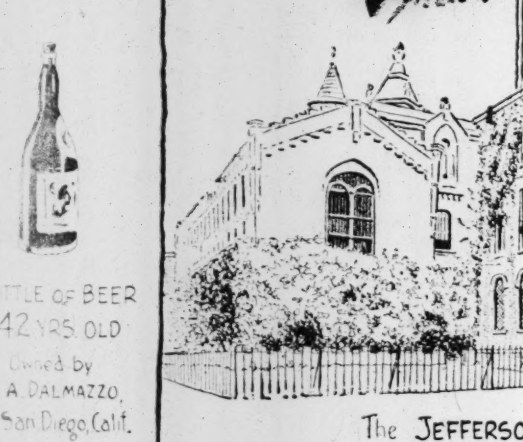 TTLE OF BEER
42 YRS. OLD
Owned by
A. DALMAZZO,
San Diego, Calif.
The JEFFERSO